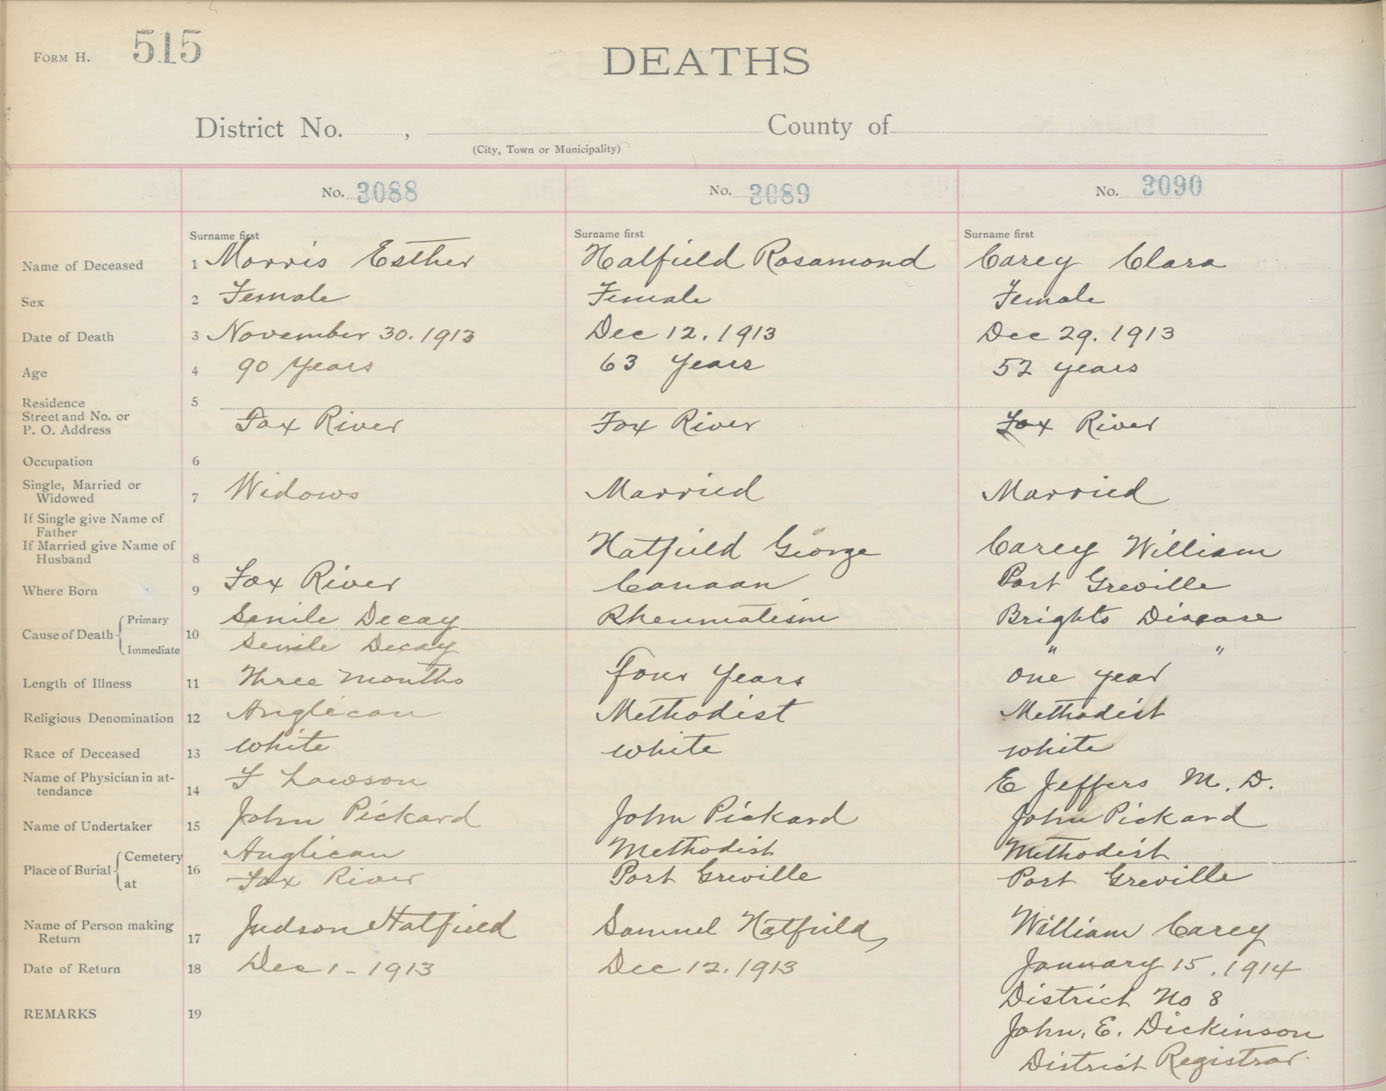 FORM H. 515
DEATHS
District No. , County of
(City, Town or Municipality)
No. 3088 No. 3089 No. 3090
Surname first Surname first Surname first
Name of Deceased 1 Morris Esther Hatfield Rosamond Carey Clara
Sex 2 Female Female Female
Date of Death 3 November 30. 1913 Dec 12. 1913 Dec 29. 1913
Age 4 90 years 63 years 52 years
Residence 5
Street and No. or
P. O. Address Fox River Fox River Fox River
Occupation 6
Single, Married or
Widowed 7 Widows Married Married
If Single give Name of
Father
If Married give Name of
Husband 8 Hatfield George Carey William
Where Born 9 Fox River Canaan Port Greville
Cause of Death Primary 10 Senile Decay Rheumatism Brights Disease
Immediate Senile Decay " "
Length of Illness 11 Three months four years one year
Religious Denomination 12 Anglican Methodist Methodist
Race of Deceased 13 white white white
Name of Physician in at-
tendance 14 F Lawson E Jeffers M. D.
Name of Undertaker 15 John Pickard John Pickard John Pickard
Place of Burial Cemetery 16 Anglican Methodist Methodist
at Fox River Port Greville Port Greville
Name of Person making
Return 17 Judson Hatfield Samuel Hatfield William Carey
Date of Return 18 Dec 1 - 1913 Dec 12. 1913 January 15. 1914
REMARKS 19 District No 8
John. E. Dickinson
District Registrar